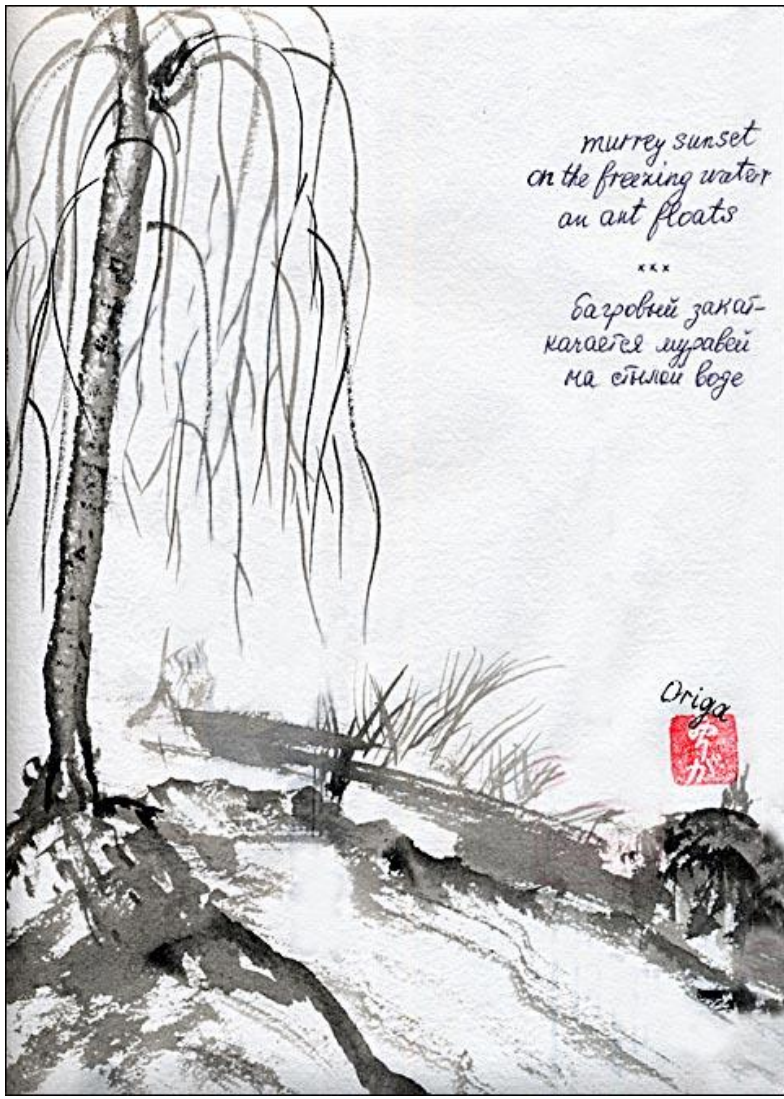 murrey sunset
on the freezing water
an ant floats
x x x
багровый закат-
качается муравей
на стылой воде
Origa